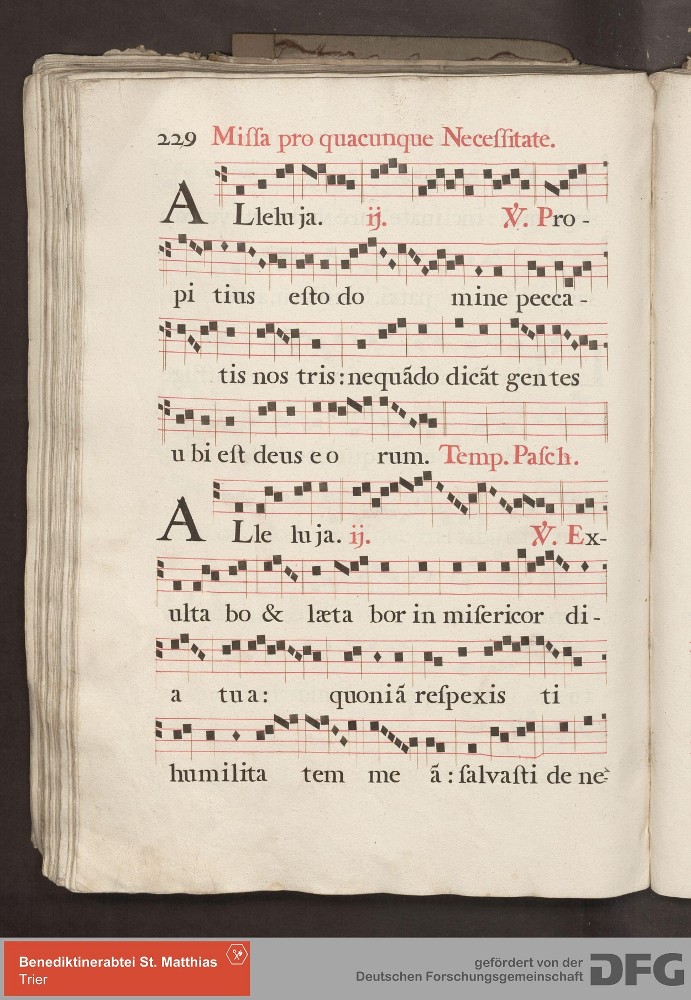 229 Miſſa pro quacunque Neceſſitate.
A Lleluja. ij. ℣. Pro-
pi tius eſto do mine pecca-
tis nos tris: nequãdo dicãt gentes
ubi eſt deus eo rum. Temp. Paſch.
A Lle luja. ij. ℣. Ex-
ulta bo & læta bor in miſericor di-
a tua: quoniã reſpexis ti
humilita tem me ã: ſalvaſti de ne-
Benediktinerabtei St. Matthias
Trier
gefördert von der
Deutschen Forschungsgemeinschaft DFG